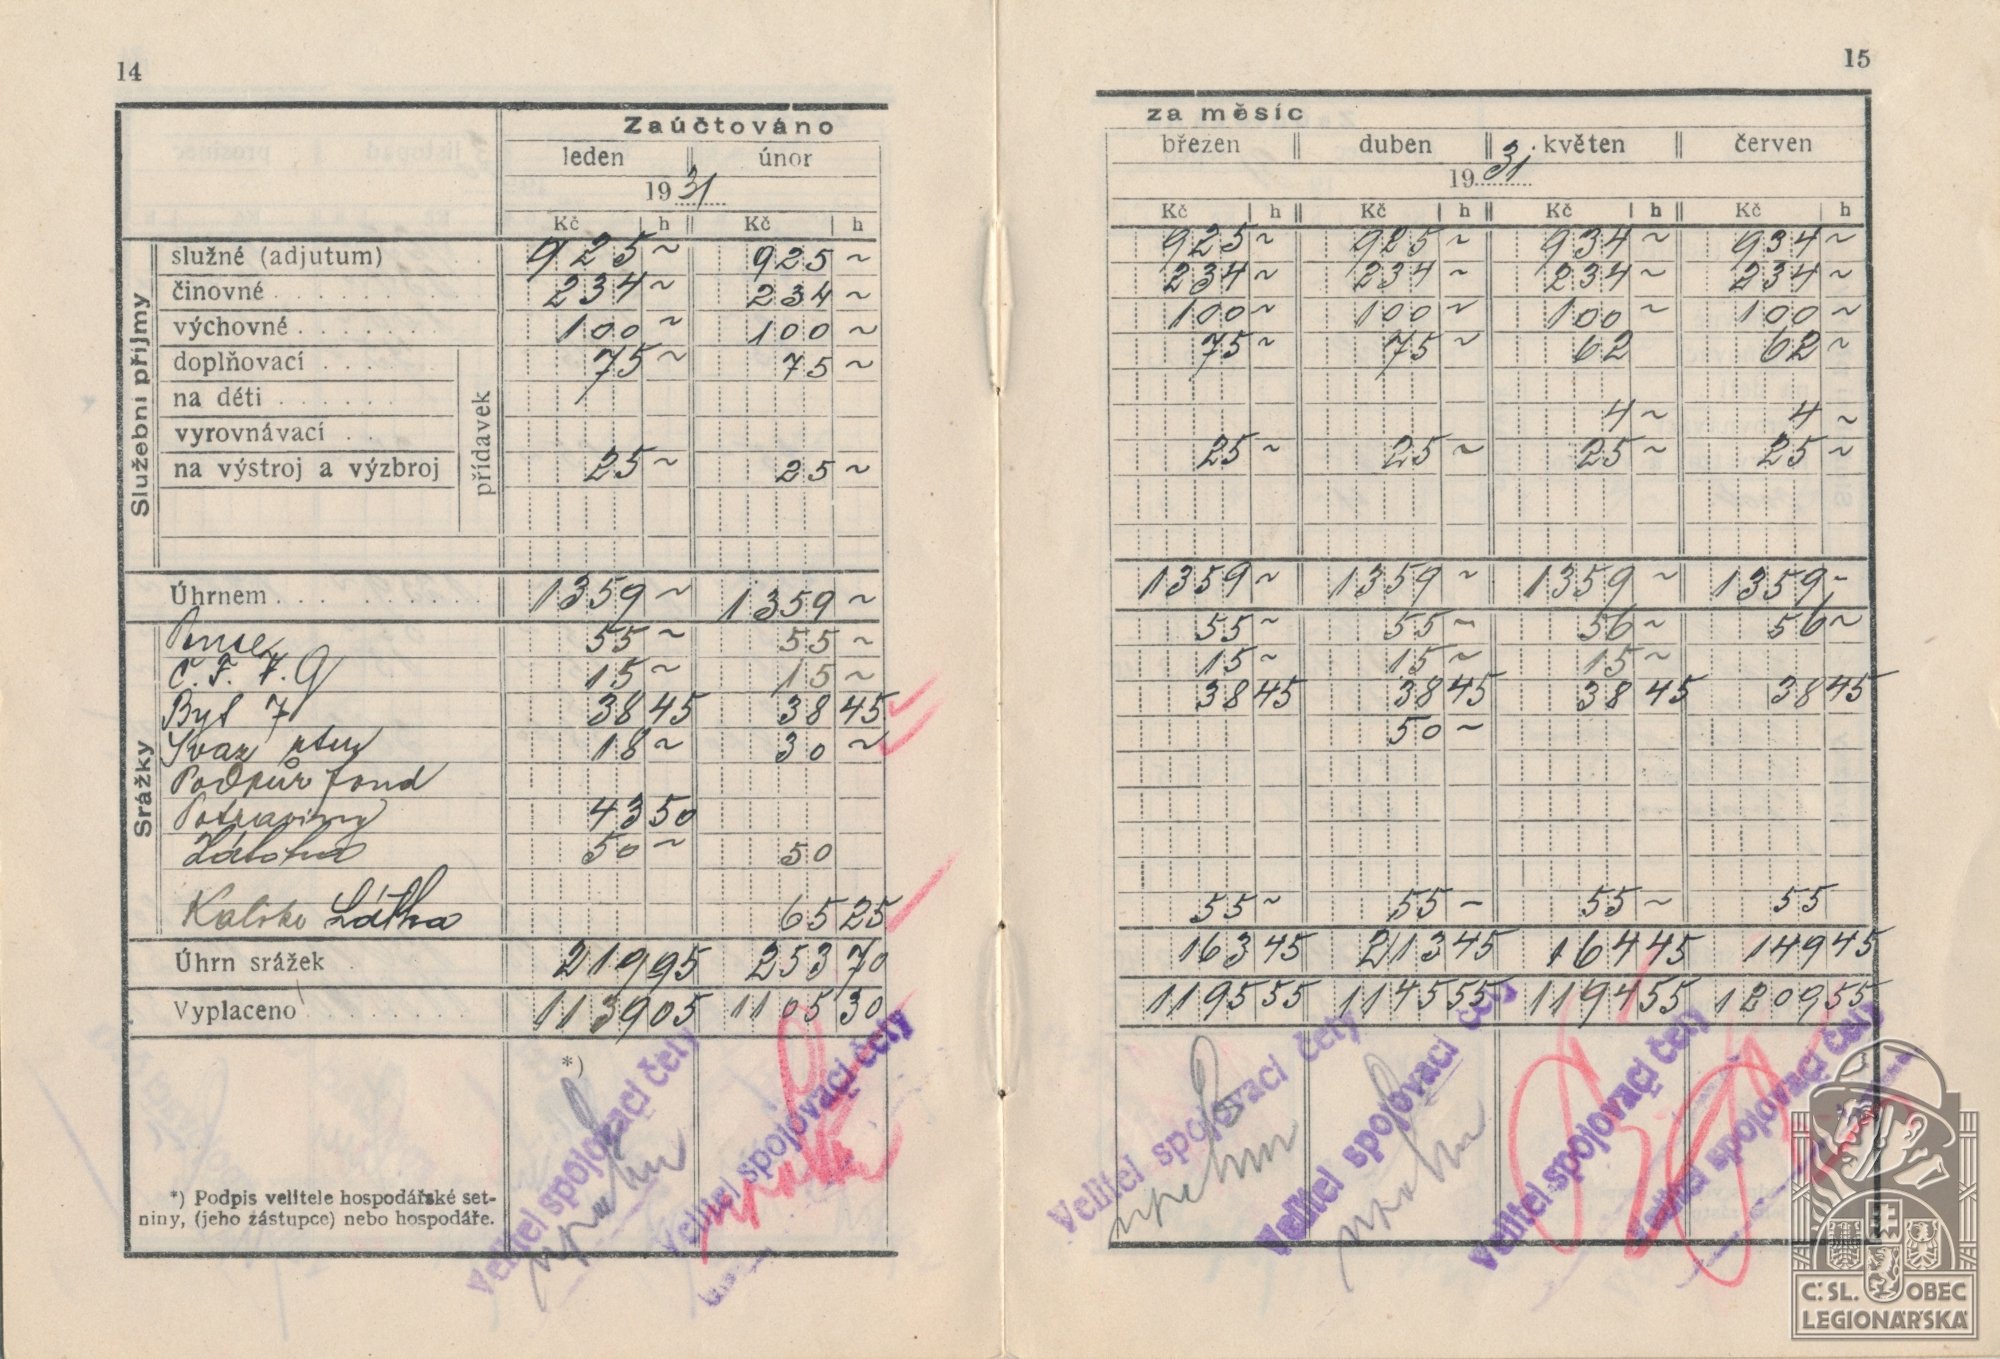 14
Zaúčtováno
leden únor
1931
Kč h Kč h
Služební příjmy
služné (adjutum) 925 ~ 925 ~
činovné 234 ~ 234 ~
výchovné 100 ~ 100 ~
doplňovací 75 ~ 75 ~
na děti
vyrovnávací
na výstroj a výzbroj 25 ~ 25 ~
přídavek
Úhrnem 1359 ~ 1359 ~
Srážky
55 ~ 55 ~
15 ~ 15 ~
Byt 38 45 38 45
18 ~ 30 ~
Podpůr fond
Potraviny 43 50
Záloha 50 ~ 50
Látka 65 25
Úhrn srážek 219 95 253 70
Vyplaceno 1139 05 1105 30
*)
Velitel spojovací čety
Velitel spojovací čety
*) Podpis velitele hospodářské set-
niny, (jeho zástupce) nebo hospodáře.
15
za měsíc
březen duben květen červen
1931
Kč h Kč h Kč h Kč h
925 ~ 925 ~ 934 ~ 934 ~
234 ~ 234 ~ 234 ~ 234 ~
100 ~ 100 ~ 100 ~ 100 ~
75 ~ 75 ~ 62 62 ~
4 ~ 4 ~
25 ~ 25 ~ 25 ~ 25 ~
1359 ~ 1359 ~ 1359 ~ 1359 -
55 ~ 55 ~ 56 ~ 56 ~
15 ~ 15 ~ 15 ~
38 45 38 45 38 45 38 45
50 ~
55 ~ 55 ~ 55 ~ 55
163 45 213 45 164 45 149 45
1195 55 1145 55 1194 55 1209 55
Velitel spojovací čety
Velitel spojovací čety
Velitel spojovací čety
Velitel spojovací čety
Č.SL. OBEC
LEGIONÁŘSKÁ